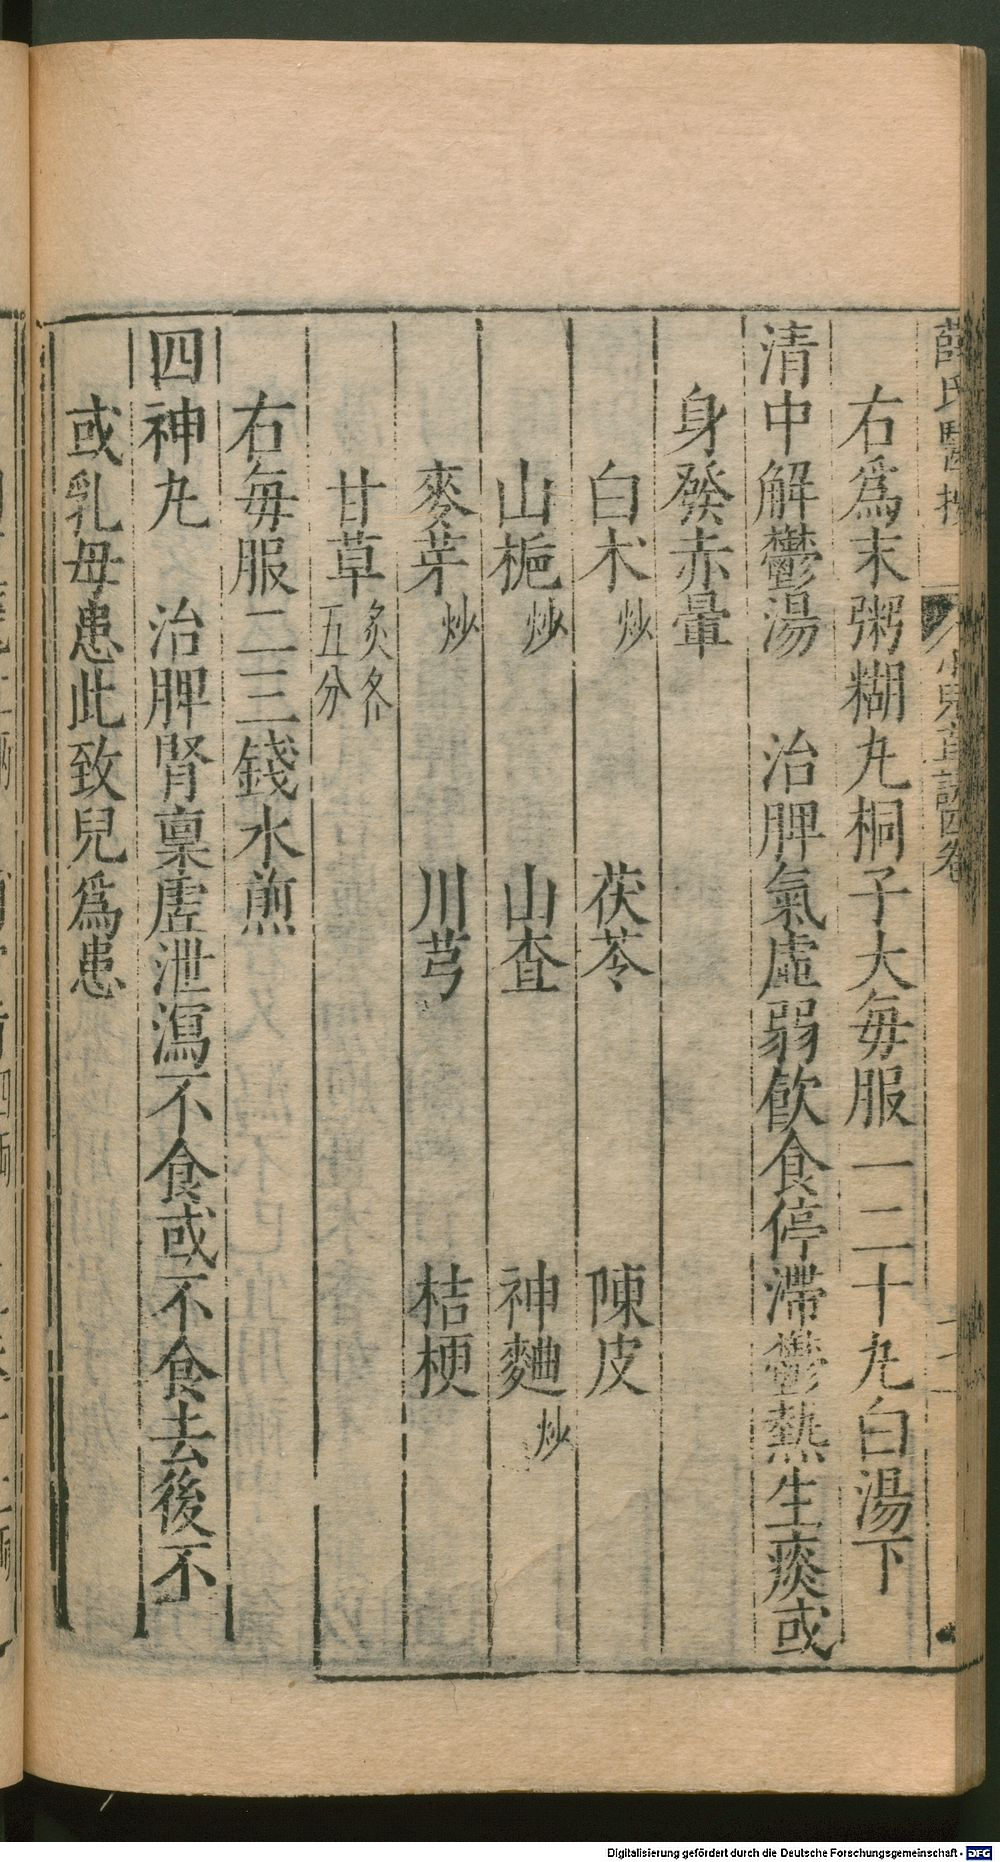 右爲末粥糊丸桐子大每服一二十丸白湯下
清中解鬱湯　治脾氣虛弱飮食停滯鬱熱生痰或
身發赤暈
白朮炒　茯苓　陳皮
山梔炒　山査　神麯炒
麥芽炒　川芎　桔梗
甘草炙各五分
右每服二三錢水煎
四神丸　治脾腎稟虛泄瀉不食或不食去後不
或乳母患此致兒爲患
Digitalisierung gefördert durch die Deutsche Forschungsgemeinschaft - DFG